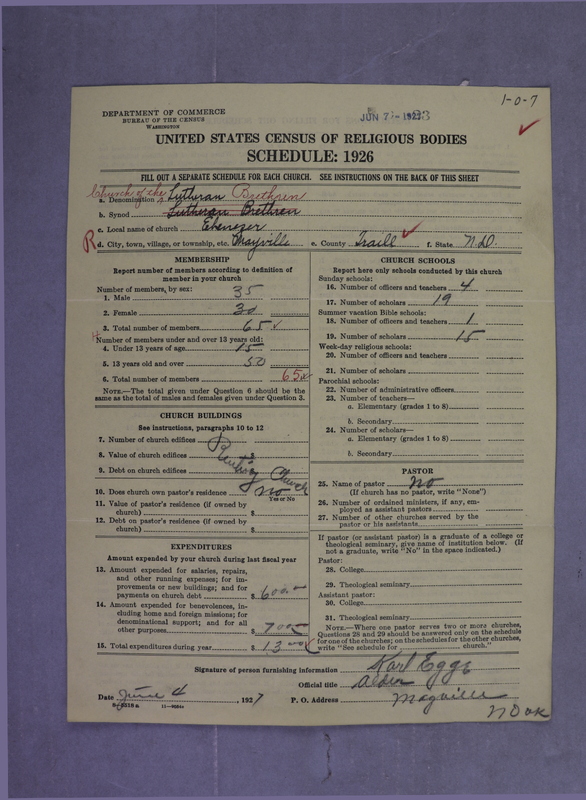 1-0-7
DEPARTMENT OF COMMERCE
BUREAU OF THE CENSUS
WASHINGTON
JUN 7 - 1927
UNITED STATES CENSUS OF RELIGIOUS BODIES
SCHEDULE: 1926
FILL OUT A SEPARATE SCHEDULE FOR EACH CHURCH. SEE INSTRUCTIONS ON THE BACK OF THIS SHEET
Church of the
a. Denomination Lutheran Brethren
b. Synod Lutheran Brethren
c. Local name of church Ebenezer
R d. City, town, village, or township, etc. Mayville e. County Traill f. State N.D.
MEMBERSHIP
Report number of members according to definition of member in your church
Number of members, by sex:
1. Male 35
2. Female 30
3. Total number of members 65
Number of members under and over 13 years old:
4. Under 13 years of age 15
5. 13 years old and over 50
6. Total number of members 65
NOTE.—The total given under Question 6 should be the same as the total of males and females given under Question 3.
CHURCH BUILDINGS
See instructions, paragraphs 10 to 12
7. Number of church edifices
8. Value of church edifices $
9. Debt on church edifices $
Renting Church
10. Does church own pastor's residence No
Yes or No
11. Value of pastor's residence (if owned by church) $
12. Debt on pastor's residence (if owned by church) $
EXPENDITURES
Amount expended by your church during last fiscal year
13. Amount expended for salaries, repairs, and other running expenses; for improvements or new buildings; and for payments on church debt $ 600.—
14. Amount expended for benevolences, including home and foreign missions; for denominational support; and for all other purposes $ 700—
15. Total expenditures during year $ 1300
CHURCH SCHOOLS
Report here only schools conducted by this church
Sunday schools:
16. Number of officers and teachers 4
17. Number of scholars 19
Summer vacation Bible schools:
18. Number of officers and teachers 1
19. Number of scholars 15
Week-day religious schools:
20. Number of officers and teachers
21. Number of scholars
Parochial schools:
22. Number of administrative officers
23. Number of teachers—
a. Elementary (grades 1 to 8)
b. Secondary
24. Number of scholars—
a. Elementary (grades 1 to 8)
b. Secondary
PASTOR
25. Name of pastor No
(If church has no pastor, write "None")
26. Number of ordained ministers, if any, employed as assistant pastors
27. Number of other churches served by the pastor or his assistants
If pastor (or assistant pastor) is a graduate of a college or theological seminary, give name of institution below. (If not a graduate, write "No" in the space indicated.)
Pastor:
28. College
29. Theological seminary
Assistant pastor:
30. College
31. Theological seminary
NOTE.—Where one pastor serves two or more churches, Questions 28 and 29 should be answered only on the schedule for one of the churches; on the schedules for the other churches, write "See schedule for church."
Signature of person furnishing information Karl Egge
Official title Alder
Date June 4, 1927 P. O. Address Mayville
N Dak